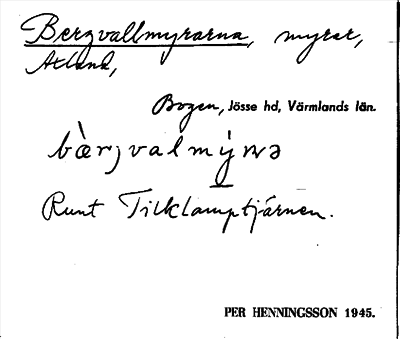 Bergvallmyrarna, myrar,
Bogen, Jösse hd, Värmlands län.
bærjvalmýna
Runt Tilklamptjärnen.
PER HENNINGSSON 1945.